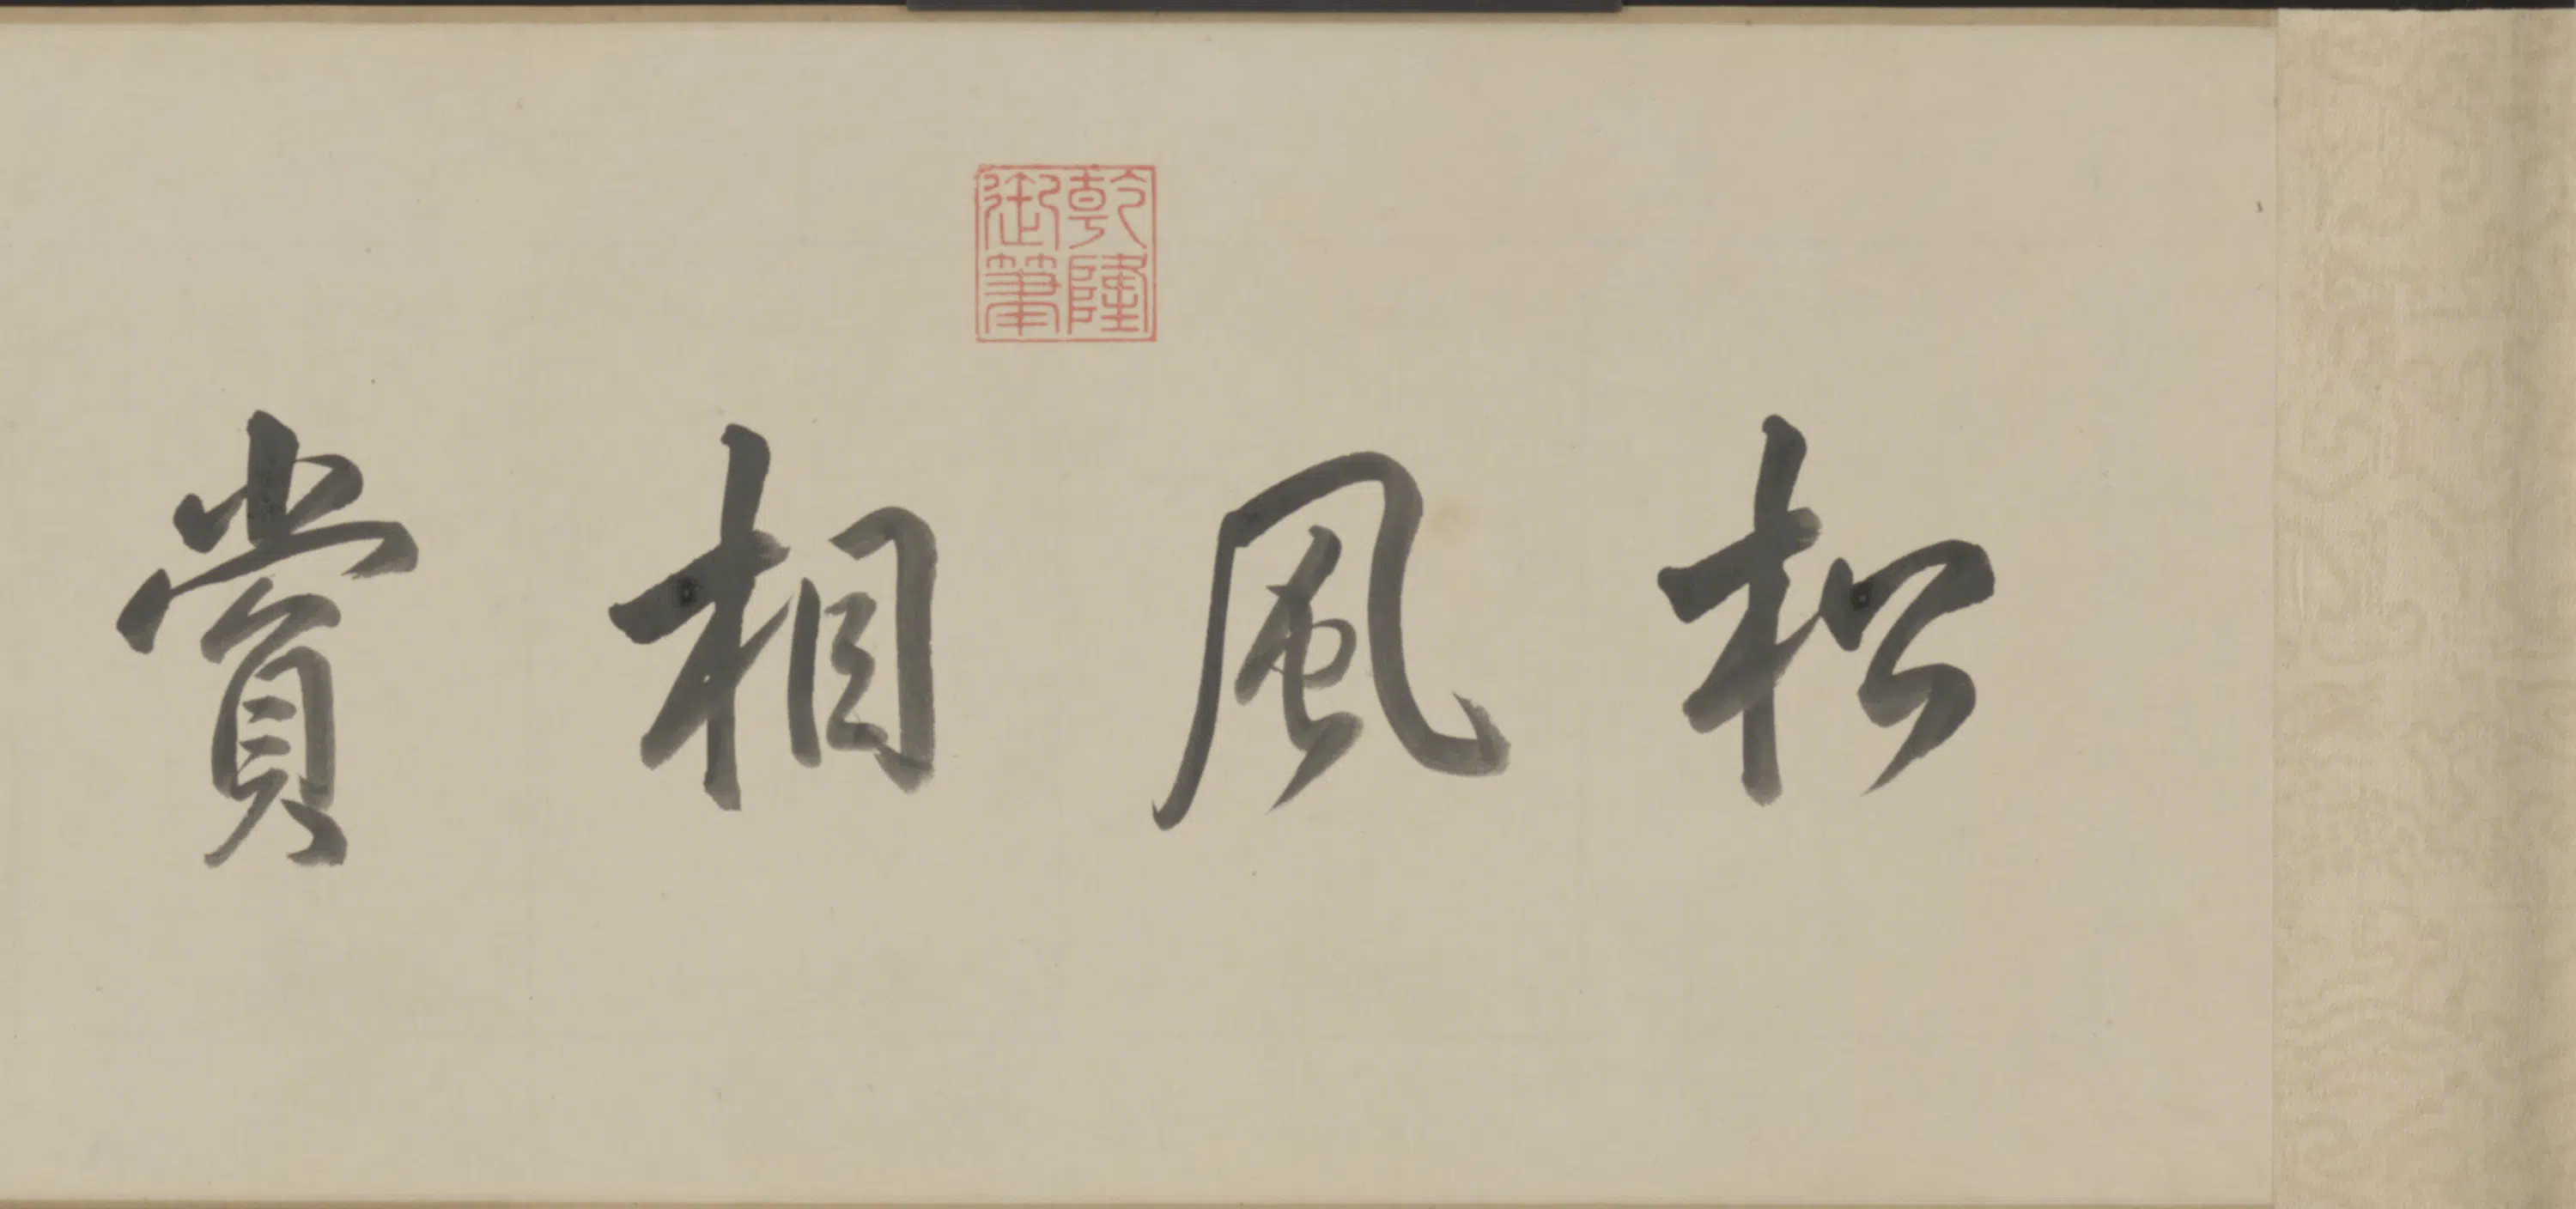 松風相賞
乾隆
御筆